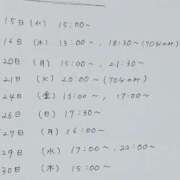 15日 (水) 15:00~
16日 (木) 13:00~, 18:30~ (70分のみ)
20日 (月) 15:00~, 21:30~
21日 (火) 20:00~ (70分のみ)
24日 (金) 15:00~, 17:00~
26日 (日) 17:30~
27日 (月) 16:00~
29日 (水) 17:00~, 22:00~
30日 (木) 15:00~